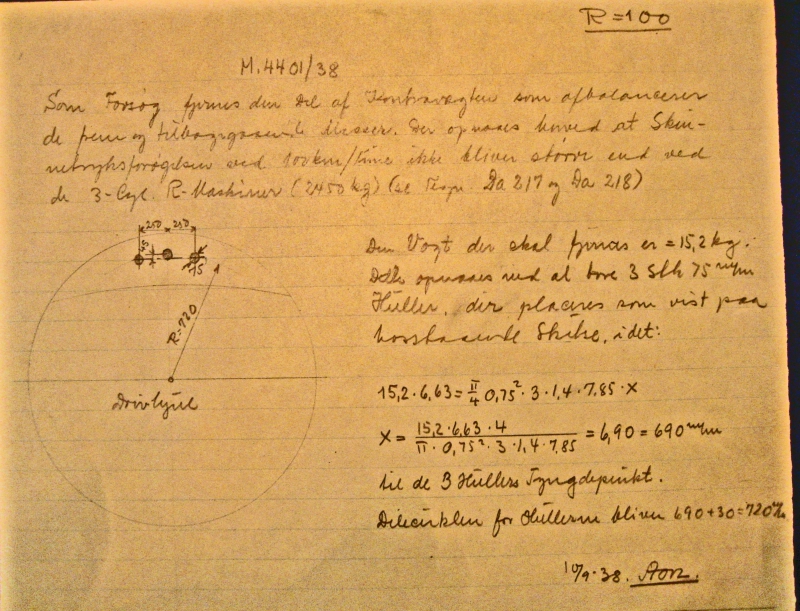 R = 100
M. 4401/38
Som Forsøg fjernes den Del af Kontravægten som afbalancerer
de frem og tilbagegaaende Masser. Der opnaaes herved at Skin-
netryksforøgelsen ved 100 km/time ikke bliver større end ved
de 3-Cyl. R-Maskiner (2450 kg) (se Tegn. Da 217 og Da 218)
250 250
45
75
R=720
Drivhjul
Den Vægt der skal fjernes er = 15,2 kg.
Dette opnaaes ved at bore 3 Stk 75 m/m
Huller, der placeres som vist paa
hosstaaende Skitse, idet:
15,2 · 6,63 = π/4 0,75² · 3 · 1,4 · 7,85 · X
X = 15,2 · 6,63 · 4 / π · 0,75² · 3 · 1,4 · 7,85 = 6,90 = 690 m/m
til de 3 Hullers Tyngdepunkt.
Delecirklen for Hullerne bliver 690 + 30 = 720 m/m
10/9-38.